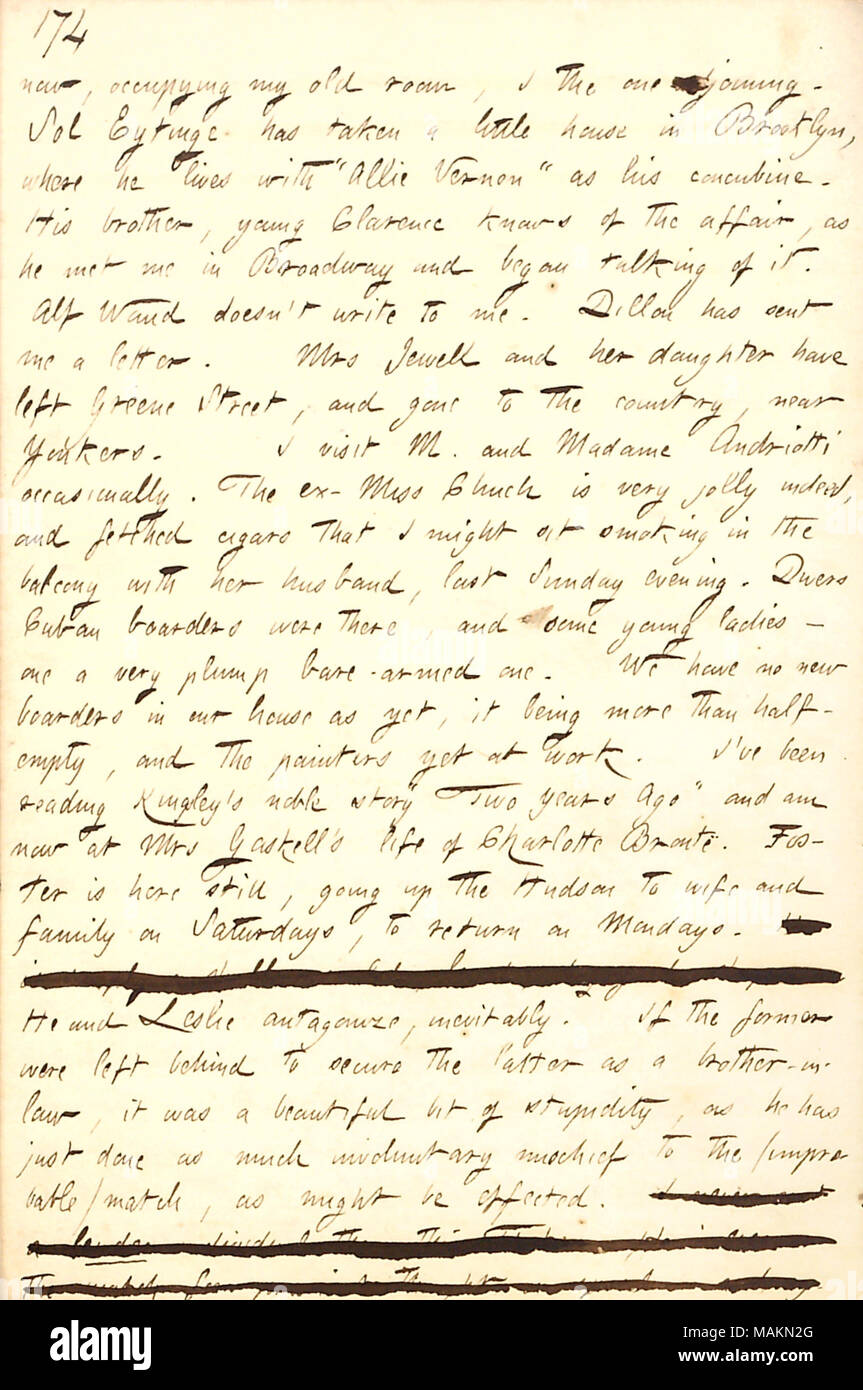 174
now, occupying my old room, I the one joining.
Sol Eytinge has taken a little house in Brooklyn,
where he lives with "Allie Vernon" as his concubine.
His brother, young Clarence knows of the affair, as
he met me in Broadway and began talking of it.
Alf Waud doesn't write to me. Dillon has sent
me a letter. Mrs Jewell and her daughter have
left Greene Street, and gone to the country, near
Yonkers. I visit M. and Madame Andriotti
occasionally. The ex-Miss Chuck is very jolly indeed,
and fetched cigars that I might sit smoking in the
balcony with her husband, last Sunday evening. Divers
Cuban boarders were there, and some young ladies —
one a very plump bare-armed one. We have no new
boarders in our house as yet, it being more than half-
empty, and the painters yet at work. I've been
reading Kingley's noble story "Two Years Ago" and am
now at Mrs Gaskell's life of Charlotte Bronte. Fos-
ter is here still, going up the Hudson to wife and
family on Saturdays, to return on Mondays.
He and Leslie antagonize, inevitably. If the former
were left behind to secure the latter as a brother-in-
law, it was a beautiful bit of stupidity, as he has
just done as much involuntary mischief to the /impro-
bable/ match, as might be effected.
alamy
Image ID: MAKN2G
www.alamy.com